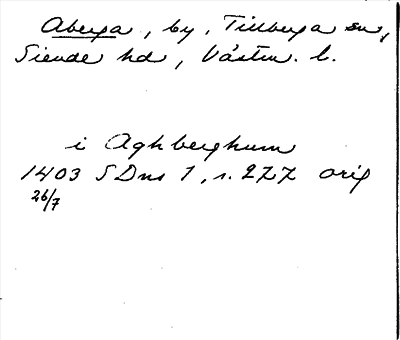 Aberga, by, Tillberga sn,
Siende hd, Västm. l.
i Aghberghum
1403 SDns 1, s. 277 orig
26/7